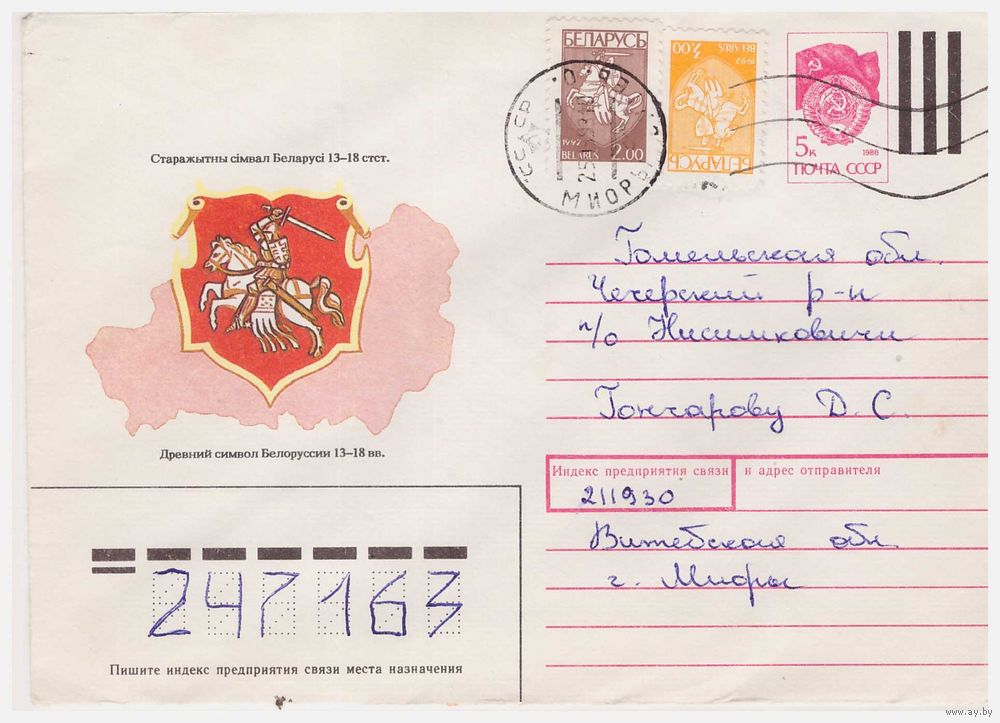 Старажытны сімвал Беларусі 13–18 стст.
Древний символ Белоруссии 13–18 вв.
БЕЛАРУСЬ
1992
BELARUS 2.00
3.00
BELARUS
1992
БЕЛАРУСЬ
МИОРЫ
5к
1988
ПОЧТА СССР
Гомельская обл.
Чечерский р-н
п/о Нисимковичи
Гончарову Д. С.
Индекс предприятия связи и адрес отправителя
211930
Витебская обл
г. Миоры
247163
Пишите индекс предприятия связи места назначения
www.ay.by